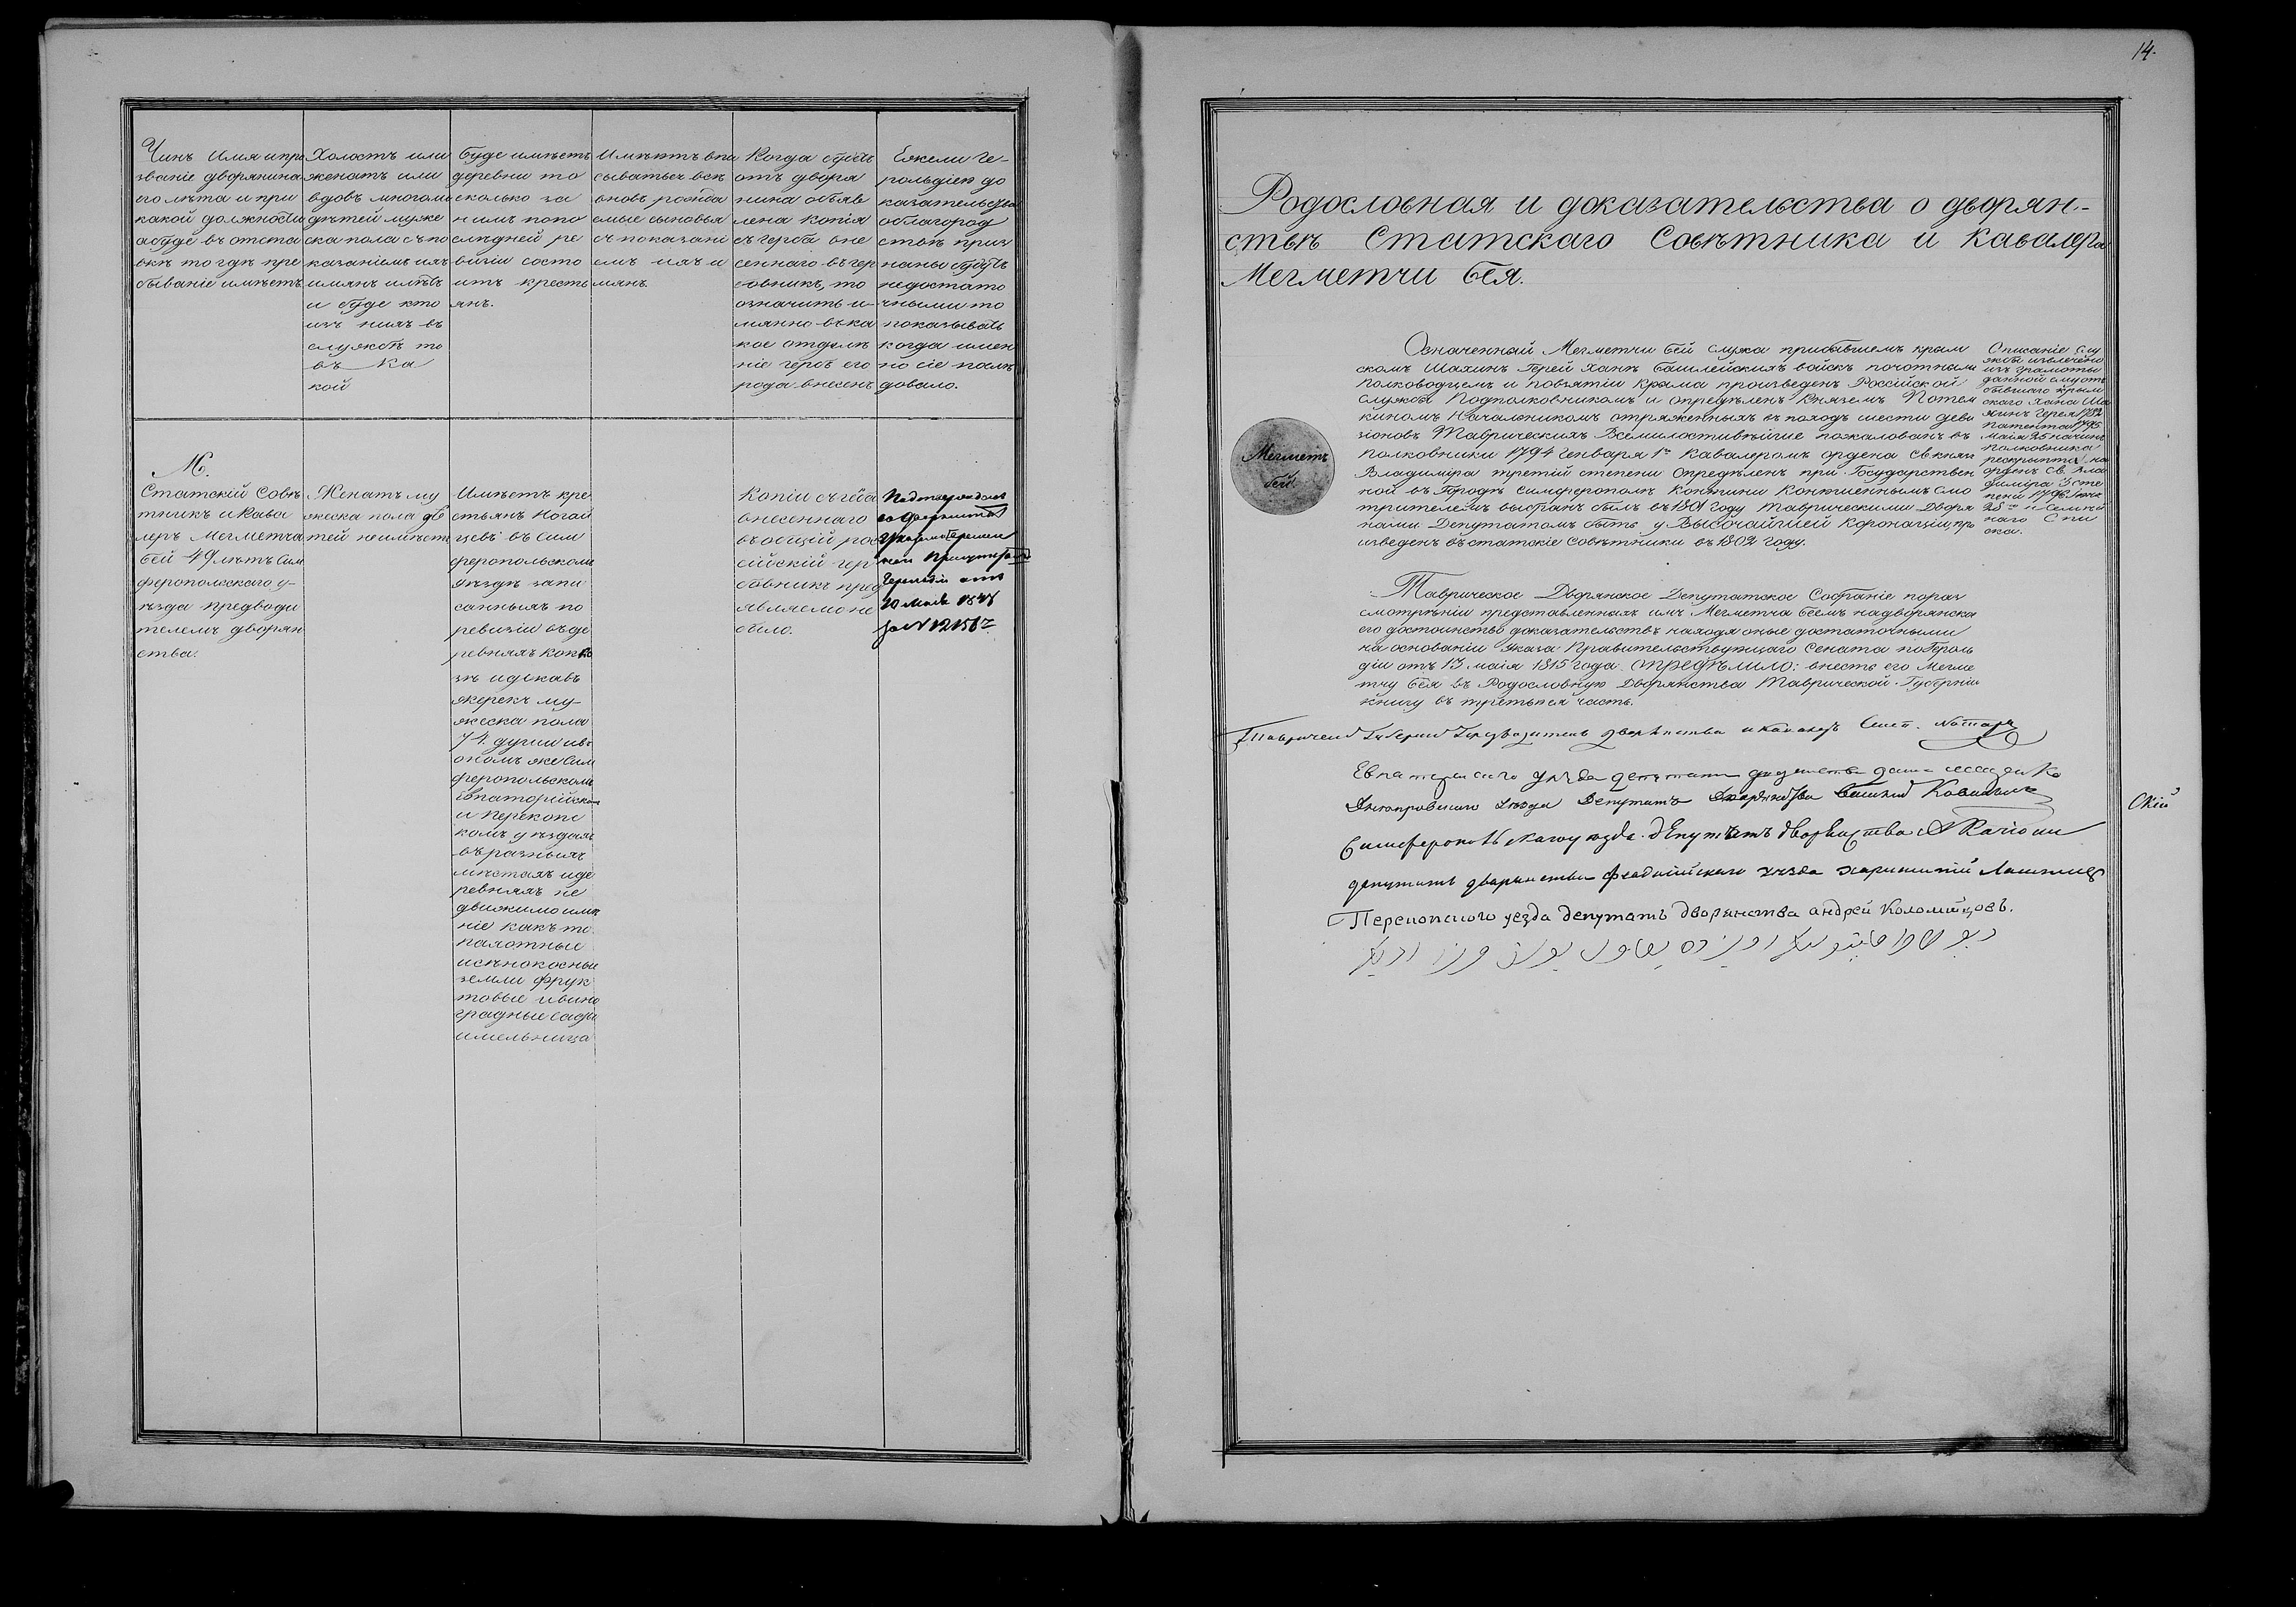 Чинъ Имя и про
званіе дворянина
его лѣта и при
какой должности
абуде въ отста
вкѣ то гдѣ пре
бываніе имѣетъ
Холостъ или
женатъ или
вдовъ много ли
дѣтей муже
ска пола съ по
казаніемъ ихъ
имянъ лѣтъ
и буде кто
изъ нихъ въ
службѣ то
въ Ка
кой
Буде имѣетъ
деревни то
сколько за
нимъ по по
слѣдней ре
визіи состо
итъ кресть
янъ.
Имѣетъ впи
сыватьсч всѣ
вновь рожда
емые сыновья
съ показані
емъ ихъ и
мянъ
Когда будетъ
отъ дворя
нина объяв
лена копія
съ герба вне
сеннаго въ гер
бовникъ, то
означить и-
мянно въ ка
кое отдѣле
ніе гербъ его
рода внесенъ
Ежели Ге-
рольдіею до
казательства
облагород
ствѣ приз
наны будутъ
недостато
чными то
показывать
когда имен
но сіе послѣ
довало.
М.
Статскій Совѣ
тникъ и Кава
леръ Мегметча
бей 49 лѣтъ Сим
феропольскаго у-
ѣзда предводи
телемъ дворян
ства.
Женатъ му
жеска пола дѣ
тей неимѣетъ
Имѣетъ кре
стьянъ Ногай
цевъ въ Сим
феропольскомъ
уѣздѣ запи
санныхъ по
ревизіи въ де
ревняхъ
му-
жеска пола
74. души и въ
ономъ же Сим
феропольскомъ
Евпаторійскомъ
и Перекопс
комъ уѣздахъ
въ разныхъ
мѣстахъ и де
ревняхъ не
движимо имѣ
ніе какъ то
пахотные
и сѣнокосные
земли фрук
товые и вино
градные сады
и мельница
Копіи съ герба
внесеннаго
въ общій рос
сійскій гер
бовникъ пред
являемо не
было.
Герольдіи отъ
20 Мая 1848
за N 12156
14.
Родословная и доказательства о дворян-
ствѣ Статскаго Совѣтника и Кавалера
Мегметчи Бея.
Мегметъ
бей.
Означенный Мегметчи Бей служа прибывшемъ крым
скомъ Шахинъ Герей Ханѣ Башлейскихъ войскъ почотнымъ
полководцемъ и повзятіи Крыма произведенъ Россійской
службы Подполковникомъ и опредѣленъ Княземъ Потем
кинымъ Начальникомъ отряженныхъ въ походъ шести деви
зіоновъ Таврическихъ Всемилостивѣйше пожалованъ въ
полковники 1794 генваря 1го кавалеромъ ордена Св: князя
Владиміра третій степени опредѣленъ при Государствен
ной въ Городѣ Симферополѣ Контини Контшеннымъ Смо
трителемъ выбранъ былъ въ 1801 году Таврическими Дворя
нами Депутатомъ быть у Высочайшей Коронаціи, про
изведенъ въ статскіе Совѣтники въ 1802 году.
Описаніе Слу
жбы извлечено
изъ грамоты
данной ему отъ
бывшаго крым
скаго Хана Ша
хинъ Герея 1782
патента 1795
маія 25 на чинъ
Полковника
рескрыпта на
орденъ Св. Вла
диміра 3 сте
пени 1796
28го и
наго Спи
ска.
Таврическое Дворянское Депутатское Собраніе по раз
смотрѣніи представленныхъ имъ Мегметча Беемъ на дворянское
его достоинство доказательствъ находя оные достаточными
на основаніи Указа Правительствующаго Сената по Героль
діи отъ 13. маія 1815 года. опредѣлило: внесть его Мегме
тчу Бея въ Родословную Дворянства Таврической Губерніи
книгу въ третьюя часть.
Таврической Губерніи Предводитель дворянства и кавалеръ Сімеонъ Нотара
Евпаторійскаго уѣзда депутатъ
Днепровскаго уѣзда Депутатъ Дворянства
Скій
Симферопольскаго уѣзда депутатъ дворянства
депутатъ дворянства Феодосійскаго уѣзда
Перекопского уезда депутатъ дворянства андрей Коломійцовъ.